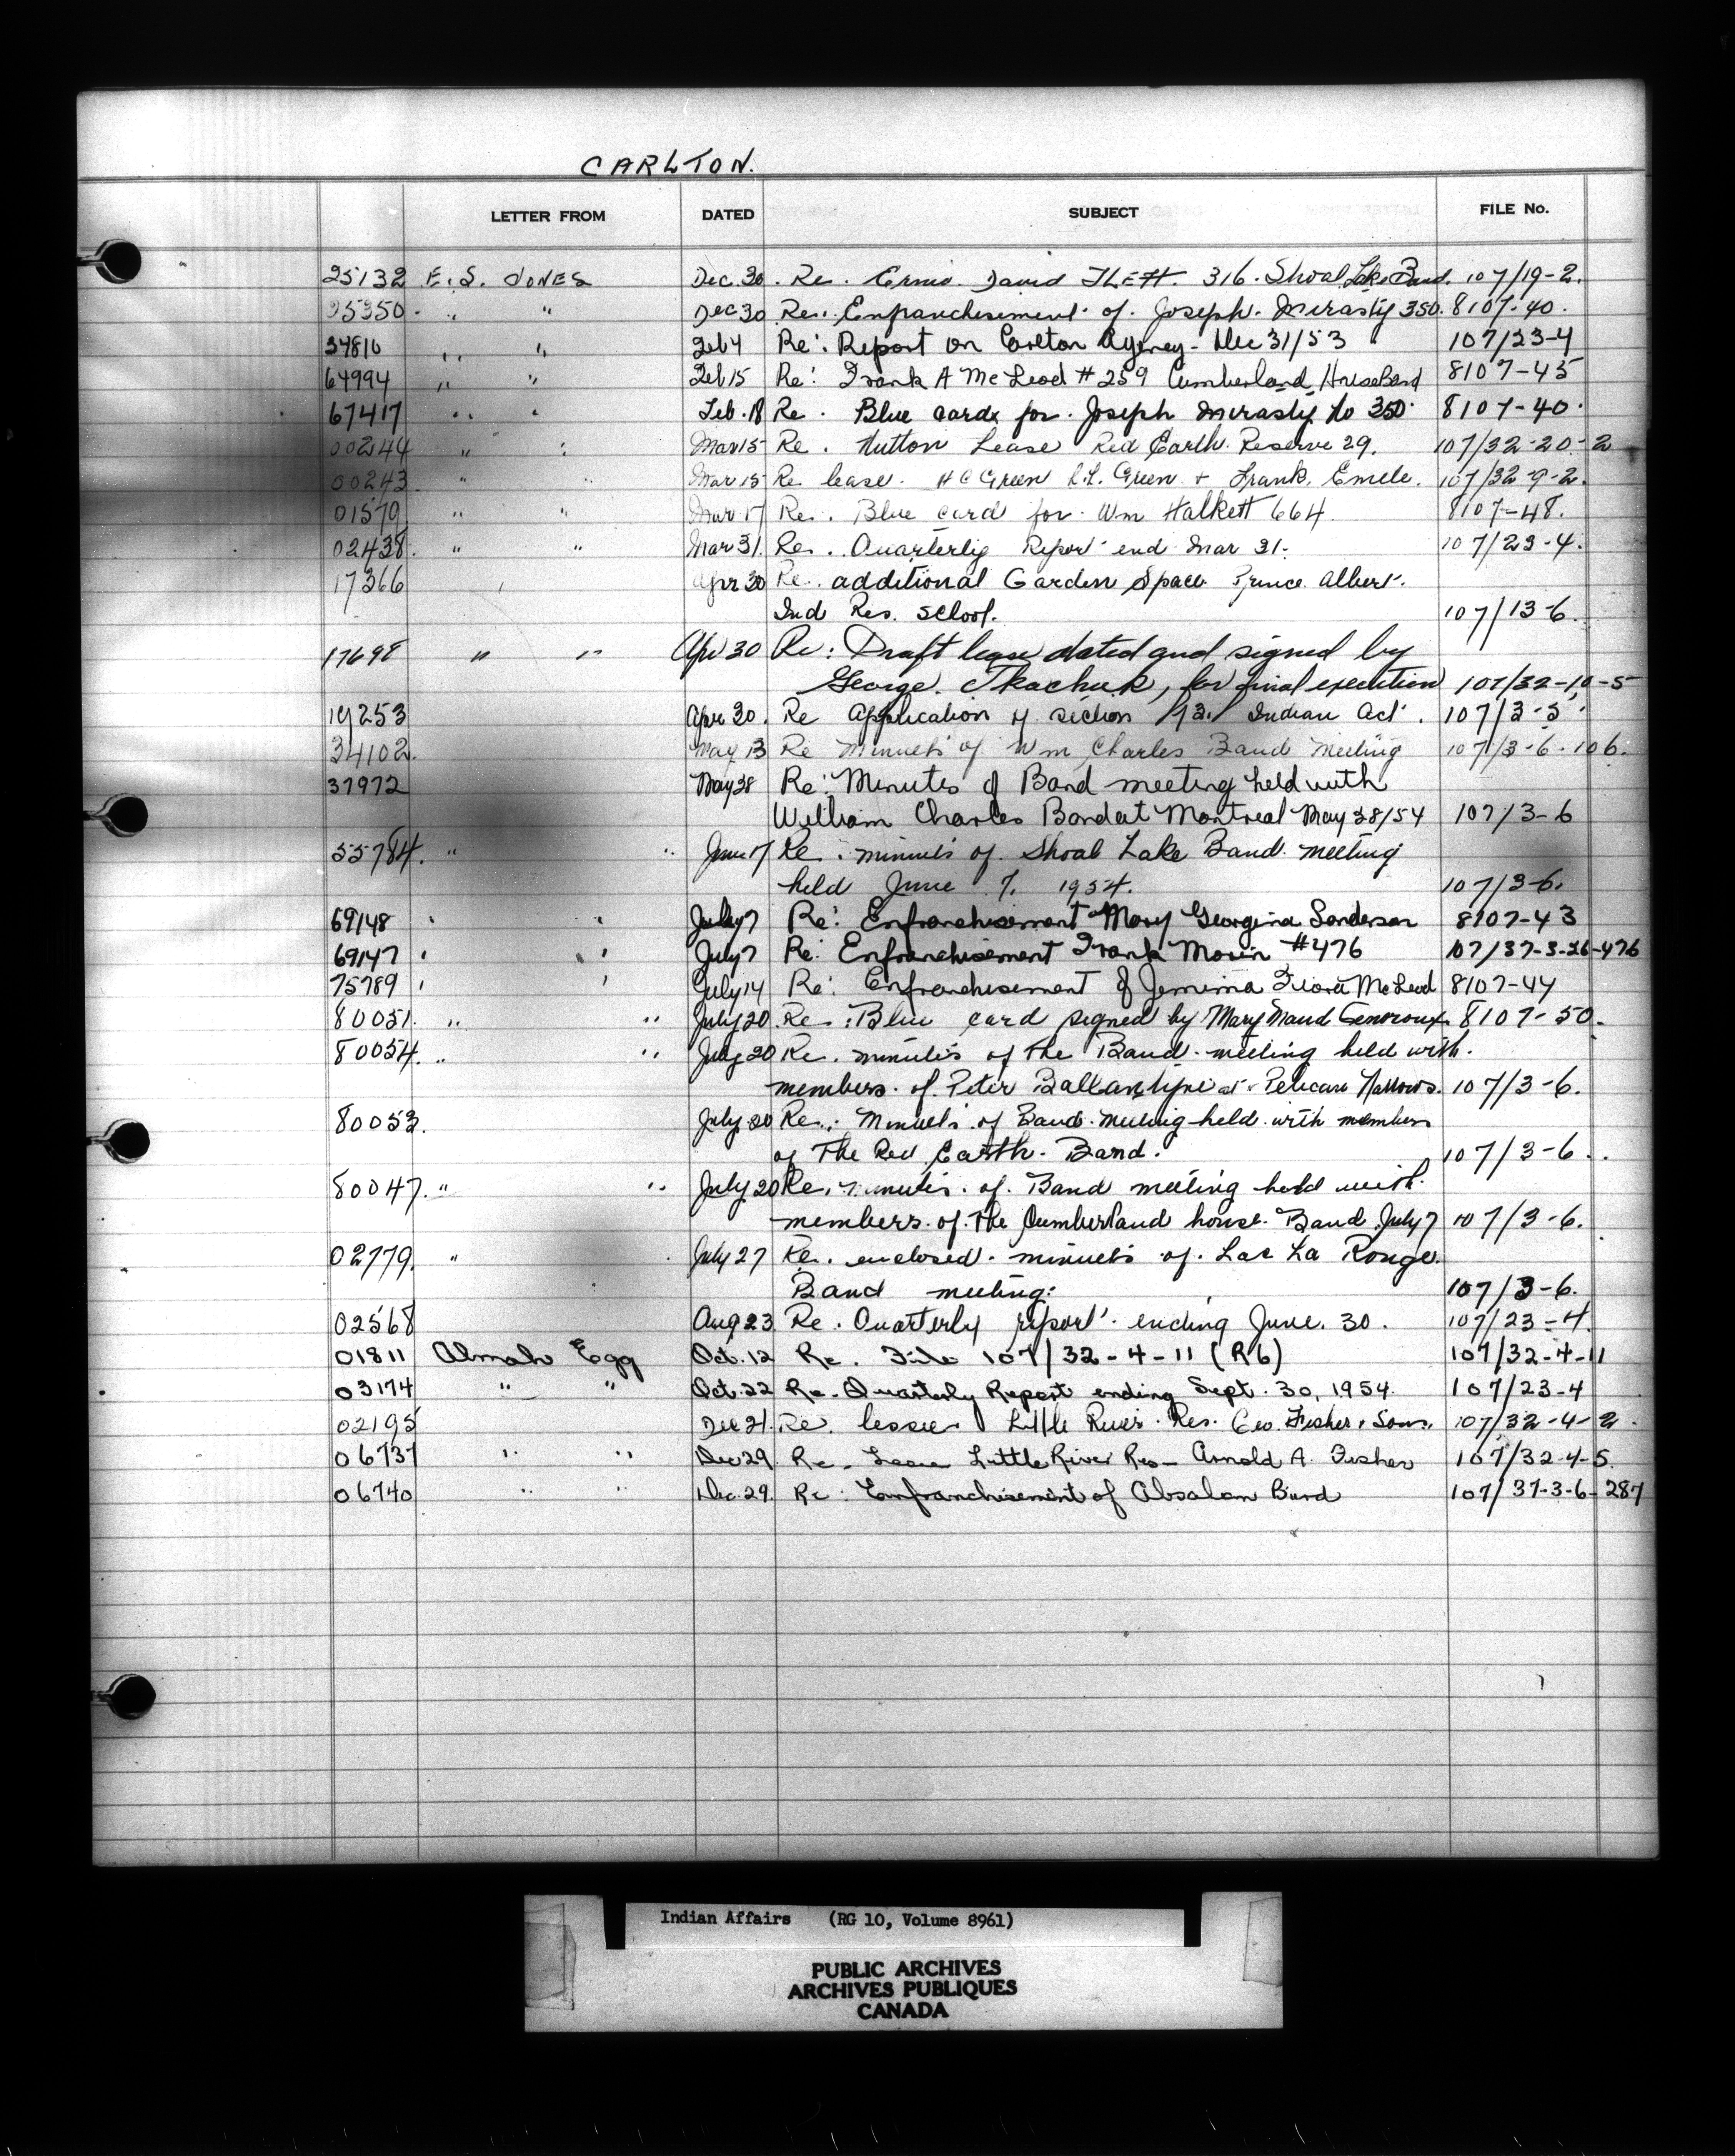 CARLTON.
LETTER FROM DATED SUBJECT FILE No.
25132 E. S. JONES Dec. 30. Re. David 316. Shoal Lake Band. 107/19-2.
25350. " " Dec 30 Re. Enfranchisement of Joseph Mirasty 350. 8107-40.
34810 " " Feb 4 Re: Report on Carlton Agency - Dec 31/53 107/23-4
64994 " " Feb 15 Re: Frank A McLeod #259 Cumberland House Band 8107-45
67417 " " Feb. 18 Re. Blue cards for Joseph Mirasty No 350. 8107-40.
00244 " " Mar 15 Re. Hutton Lease Red Earth Reserve 29. 107/32-20-2
00243 " " Mar 15 Re lease. H C Green L.L. Green + Frank. Emele. 107/32-9-2.
01579 " " Mar 17 Re. Blue card for Wm Halkett 664. 8107-48.
02438. " " Mar 31. Re. Quarterly Report end Mar 31. 107/23-4.
17366 Apr 30 Re. additional Garden Space Prince Albert.
Ind Res. School. 107/13-6.
17698 " " Apr 30 Re: Draft lease dated and signed by
George. Tkachuk, for final execution 107/32-10-5
19253 Apr 30. Re Application of section 112. Indian Act. 107/3-5.
34102. May 13 Re Minuets of Wm Charles Band Meeting 107/3-6-106.
37972 May 28 Re: Minutes of Band meeting held with
William Charles Band at Montreal May 28/54 107/3-6
55784. " " June 17 Re: minuets of Shoal Lake Band meeting
held June 7. 1954. 107/3-6.
69148 " " July 7 Re: Enfranchisement Mary Georgina Sanderson 8107-43
69147 " " July 7 Re: Enfranchisement Frank Morin #476 107/37-3-26-476
75789 " " July 14 Re: Enfranchisement of Jemima Flora McLeod 8107-44
80051. " " July 20. Re: Blue card signed by Mary Maud Genroux. 8107-50.
80054. " " July 20 Re. minutes of the Band meeting held with.
members of Peter Ballantyne at Pelican Narrows. 107/3-6.
80053. July 20 Re: Minuets of Band meeting held with members
of The Red Earth. Band. 107/3-6.
80047. " " July 20 Re. minutes of Band meeting held with
members of the Cumberland house Band July 7 107/3-6.
02779. " July 27 Re. enclosed minuets of Lac La Ronge.
Band meeting: 107/3-6.
02568 Aug 23. Re. Quarterly report ending June. 30. 107/23-4.
01811 Almah Egg Oct. 12 Re. File 107/32-4-11 (R6) 107/32-4-11
03174 " " Oct. 22 Re. Quarterly Report ending Sept. 30, 1954. 107/23-4
02195 Dec 21. Re. lessee Little River Res. Geo. Fisher & Sons. 107/32-4-2.
06737 " " Dec 29. Re. Lease Little River Res- Arnold A. Fisher 107/32-4-5.
06740 " " Dec. 29. Re: Enfranchisement of Absalon Burd 107/37-3-6-287
Indian Affairs (RG 10, Volume 8961)
PUBLIC ARCHIVES
ARCHIVES PUBLIQUES
CANADA